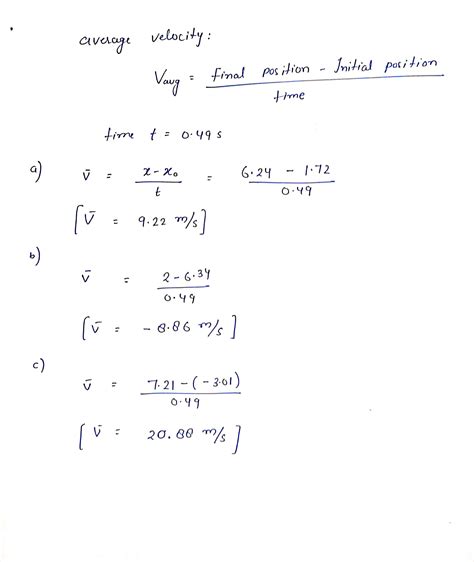 average velocity:
Vavg = final position - Initial position / time
time t = 0.49 s
a) v̄ = x - x₀ / t = 6.24 - 1.72 / 0.49
[v̄ = 9.22 m/s]
b)
v̄ = 2 - 6.34 / 0.49
[v̄ = -8.86 m/s]
c)
v̄ = 7.21 - (-3.01) / 0.49
[v̄ = 20.88 m/s]